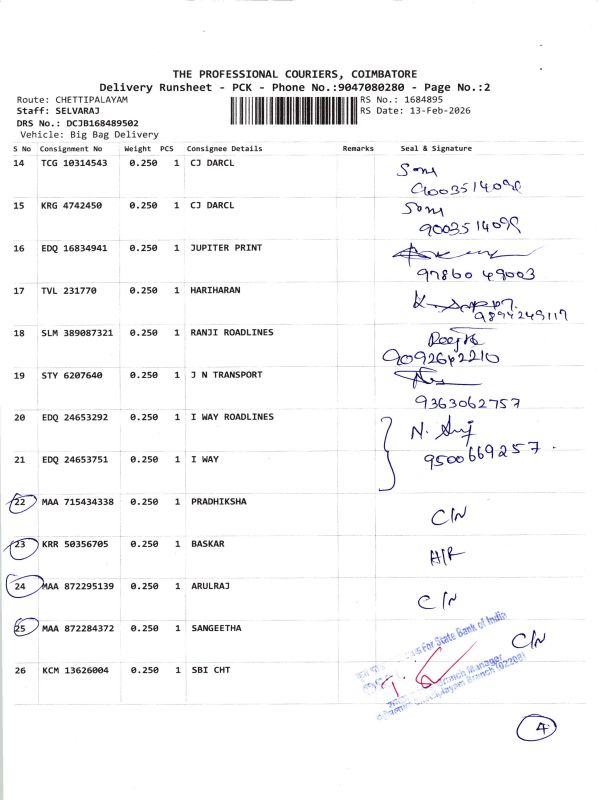 THE PROFESSIONAL COURIERS, COIMBATORE
Delivery Runsheet - PCK - Phone No.:9047080280 - Page No.:2
Route: CHETTIPALAYAM
RS No.: 1684895
Staff: SELVARAJ
RS Date: 13-Feb-2026
DRS No.: DCJB168489502
Vehicle: Big Bag Delivery
S No Consignment No Weight PCS Consignee Details Remarks Seal & Signature
14 TCG 10314543 0.250 1 CJ DARCL
15 KRG 4742450 0.250 1 CJ DARCL
9003514098
16 EDQ 16834941 0.250 1 JUPITER PRINT
97860 49003
17 TVL 231770 0.250 1 HARIHARAN
9894249117
18 SLM 389087321 0.250 1 RANJI ROADLINES
19 STY 6207640 0.250 1 J N TRANSPORT
9363062757
20 EDQ 24653292 0.250 1 I WAY ROADLINES
N.
21 EDQ 24653751 0.250 1 I WAY
9500669257
22 MAA 715434338 0.250 1 PRADHIKSHA
C/N
23 KRR 50356705 0.250 1 BASKAR
24 MAA 872295139 0.250 1 ARULRAJ
C/N
25 MAA 872284372 0.250 1 SANGEETHA
C/N
For State Bank of India
26 KCM 13626004 0.250 1 SBI CHT
Branch Manager
Branch (02208)
4